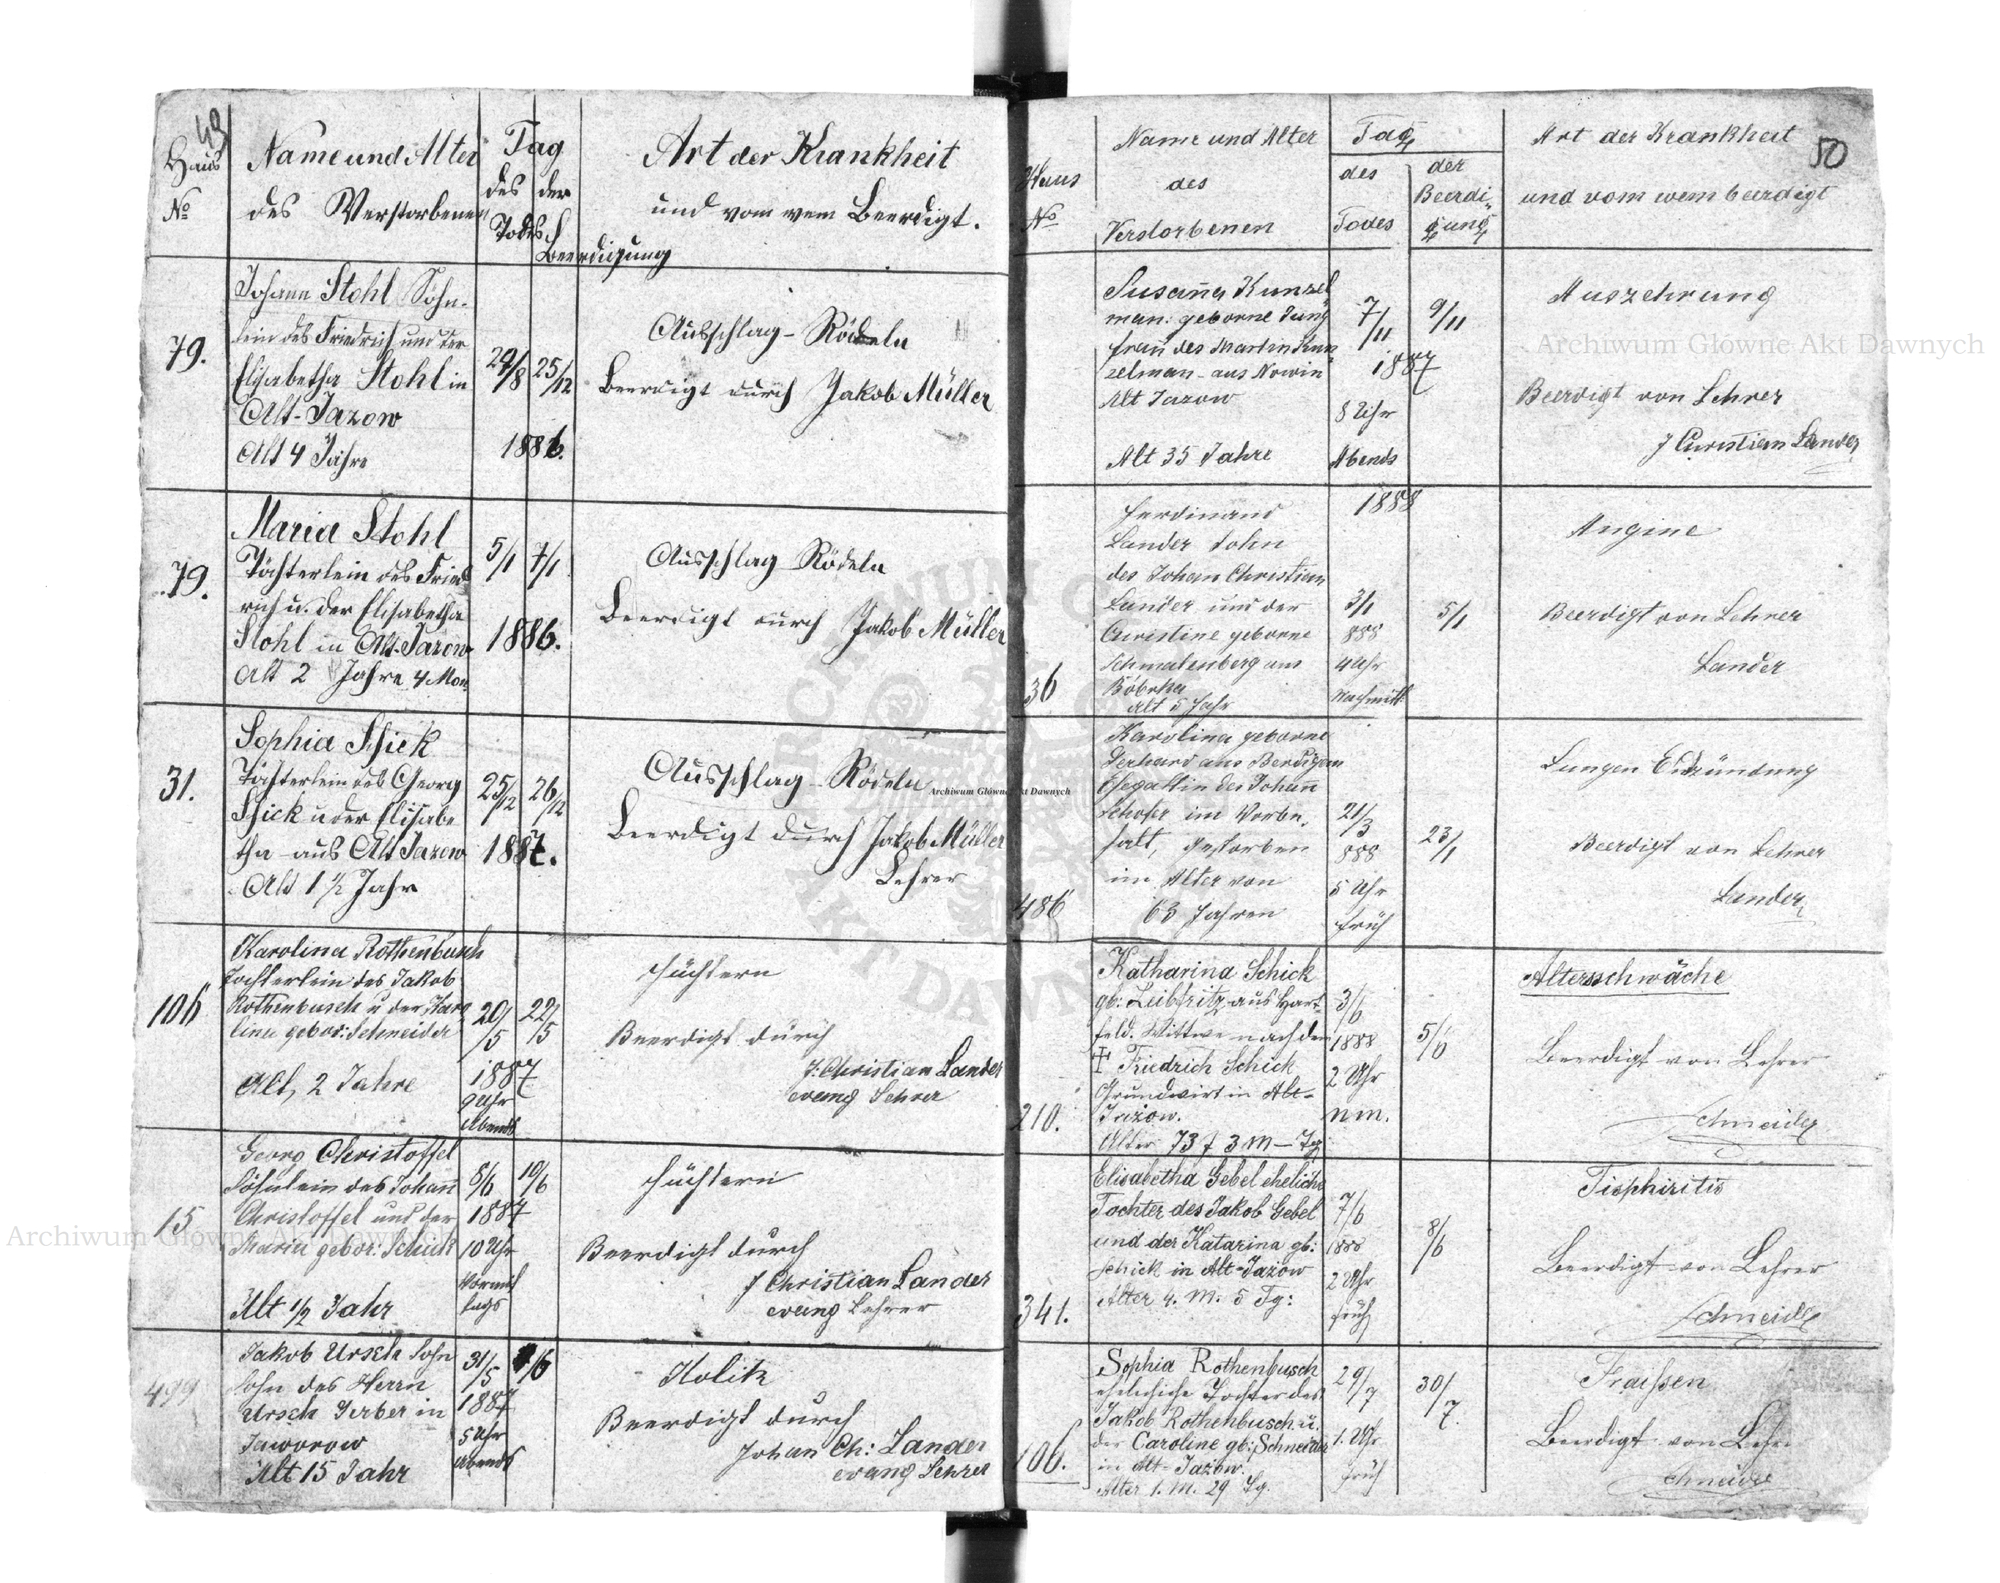 49
Haus
No
Name und Alter
des Verstorbenen
Tag
des
Todes
der
Beerdigung
Art der Krankheit
und vom wem Beerdigt.
79.
Johann Stohl Söhn-
lein des Friedrich und der
Elisabetha Stohl in
Alt-Jazow
Alt 4 Jahre
24/8
25/12
1886.
Ausschlag - Rödeln
Beerdigt durch Jakob Müller
79.
Maria Stohl
Töchterlein des Fried
rich u. der Elisabetha
Stohl in Alt-Jazow
Alt 2 Jahre 4 Mon.
5/1
7/1
1886.
Ausschlag Rödeln
Beerdigt durch Jakob Müller
31.
Sophia Schick
Töchterlein des Georg
Schick u der Elisabe
tha aus Alt Jazow
Alt 1 1/2 Jahr
25/12
26/12
1887.
Ausschlag Rödeln
Beerdigt durch Jakob Müller
Lehrer
106
Karolina Rothenbusch
Töchterlein des Jakob
Rothenbusch u der Karo
lina gebor: Schneider
Alt, 2 Jahre
20/5
22/5
1887
9 Uhr
Abends
Beerdigt durch
J. Christian Lander
evang Lehrer
15
Georg Christoffel
Söhnlein des Johann
Christoffel und der
Maria gebor: Schick
Alt 1/2 Jahr
8/6
10/6
1887
10 Uhr
Vormit
tags
Beerdigt durch
J Christian Lander
evang Lehrer
499
Jakob Ursch Sohn
Sohn des Herrn
Ursch Gerber in
Jaworow
Alt 15 Jahr
31/5
1/6
1887
5 Uhr
Abends
Kolik
Beerdigt durch
Johan Ch: Lander
evang Lehrer
50
Haus
No
Name und Alter
des
Verstorbenen
Tag
des
Todes
der
Beerdi
gung
Art der Krankheit
und vom wem beerdigt
Susanna Kunzel
man: geborne Jung
Frau des Martin Kun
zelman aus Nowin
Alt Jazow
Alt 35 Jahre
7/11
9/11
1887
8 Uhr
Abends
Auszehrung
Beerdigt von Lehrer
J Christian Lander
36
Ferdinand
Lander Sohn
des Johan Christian
Lander und der
Christine geborne
Schmalenberg aus
Bóbrka
alt 5 Jahr
1888
3/1
888
4 Uhr
Nachmitt.
5/1
Angine
Beerdigt von Lehrer
Lander
486
Karolina geborne
Gerhard aus
Ehegattin des Johann
Schofer im Vorbe.
halt, gestorben
im Alter von
63 Jahren
21/3
888
5 Uhr
früh
23/1
Lungen Entzündung
Beerdigt von Lehrer
Lander
210.
Katharina Schick
gb: Leibfritz aus Hart-
feld. Wittwe nach dem
† Friedrich Schick
Grundwirt in Alt-
Jazow.
Alter 73 J 3 M — Tg
3/6
1888
2 Uhr
nm.
5/6
Altersschwäche
Beerdigt von Lehrer
Schneider
341.
Elisabetha Gebel eheliche
Tochter des Jakob Gebel
und der Katarina gb:
Schick in Alt-Jazow
Alter 4. M. 5 Tg:
7/6
1888
2 Uhr
früh
8/6
Beerdigt von Lehrer
Schneider
106.
Sophia Rothenbusch
eheliche Tochter des
Jakob Rothenbusch u.
der Caroline gb: Schneider
in Alt-Jazow.
Alter 1. M. 29 Tg.
29/7
1. Uhr
früh
30/7.
Fraißen
Beerdigt von Lehr
Schneider
Archiwum Główne Akt Dawnych
Archiwum Główne Akt Dawnych
Archiwum Główne Akt Dawnych
ARCHIWUM GŁÓWNE AKT DAWNYCH